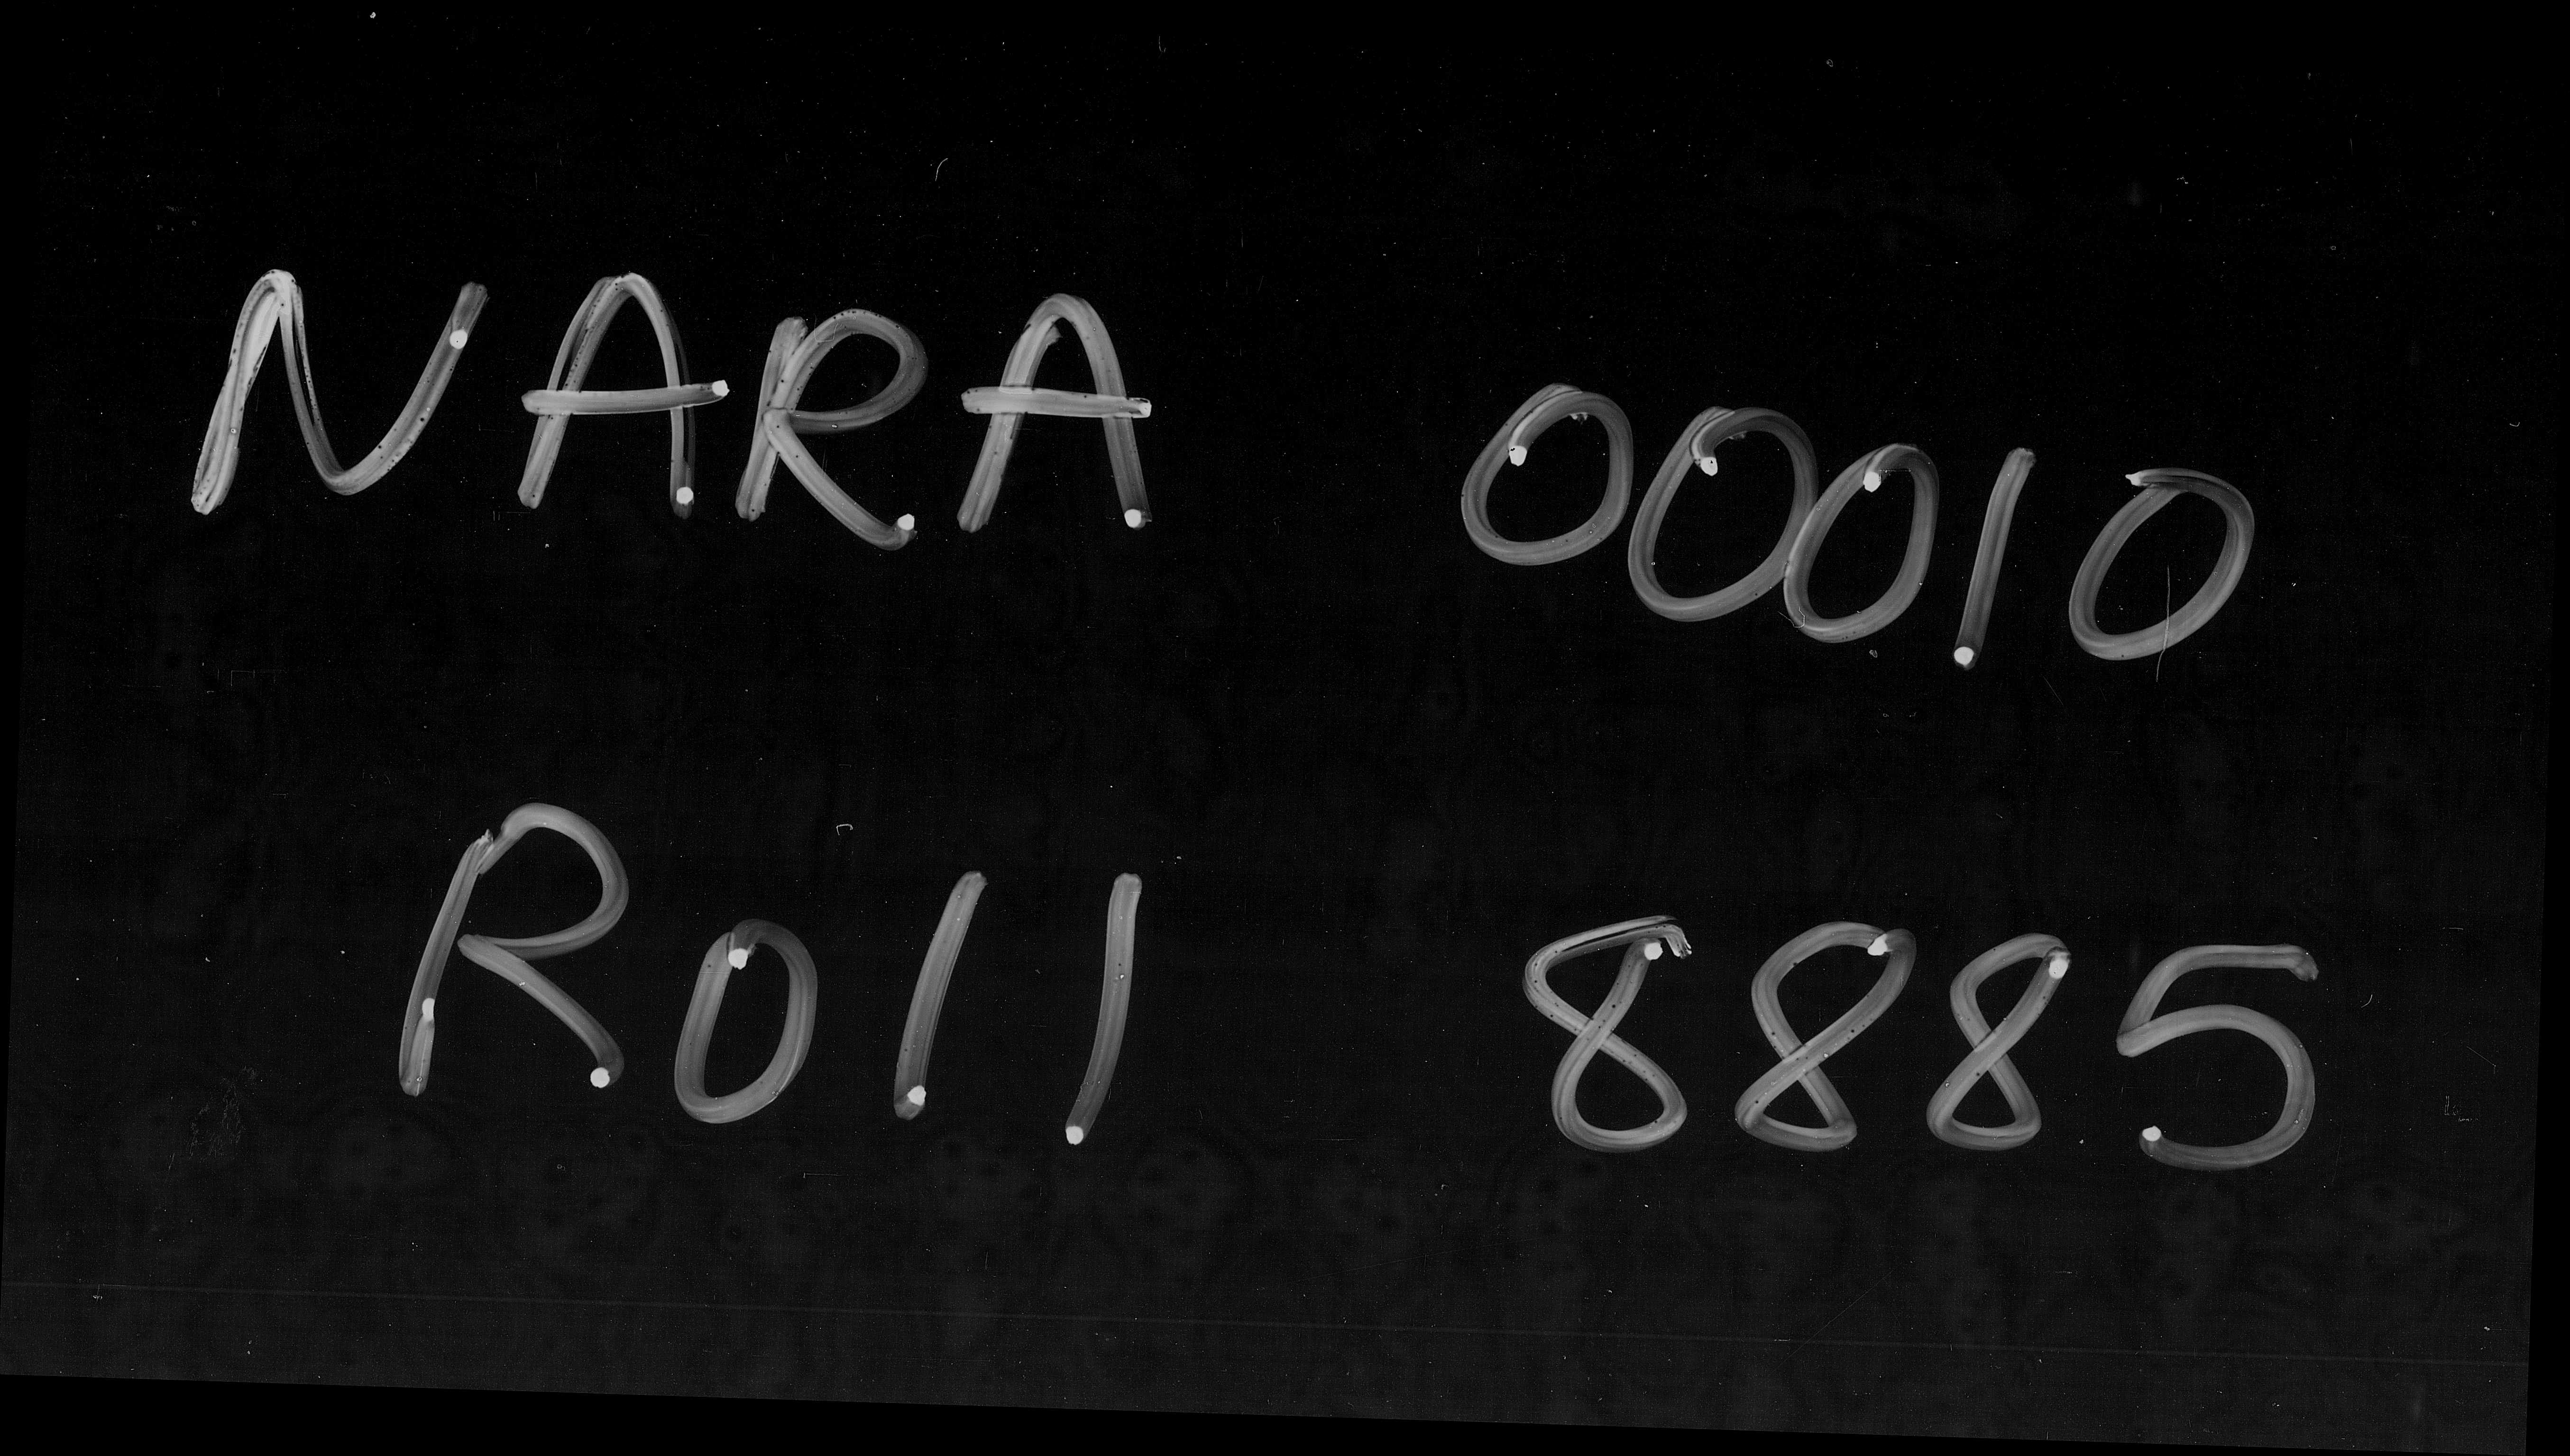 NARA 00010
Roll 8885